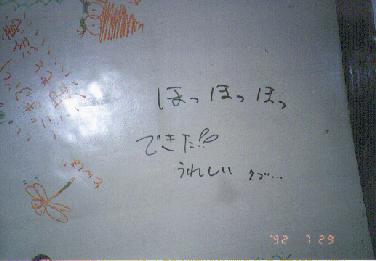 ほっほっほっ
できた!!
うれしい
'92 7 29